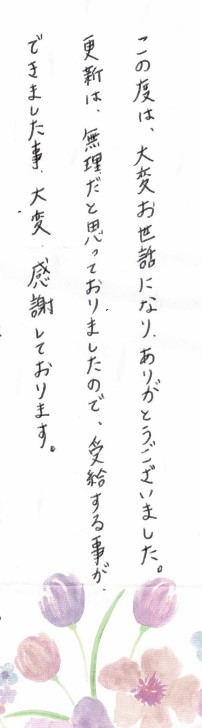 この度は、大変お世話になり、ありがとうございました。
更新は、無理だと思っておりましたので、受給する事が、
できました事、大変、感謝しております。